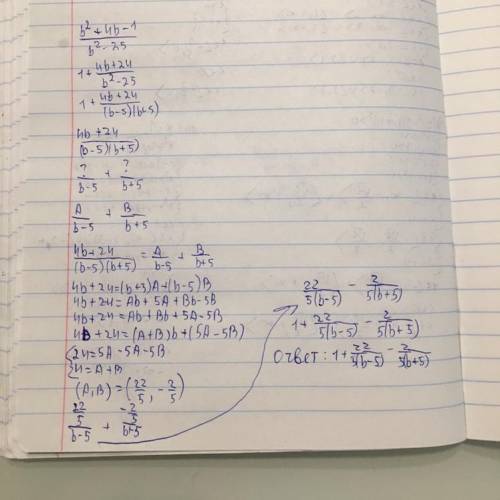 (b² + 4b - 1)/(b² - 25)
1 + (4b + 24)/(b² - 25)
1 + (4b + 24)/((b-5)(b+5))
(4b + 24)/((b-5)(b+5))
?/(b-5) + ?/(b+5)
A/(b-5) + B/(b+5)
(4b + 24)/((b-5)(b+5)) = A/(b-5) + B/(b+5)
4b + 24 = (b+5)A + (b-5)B
4b + 24 = Ab + 5A + Bb - 5B
4b + 24 = Ab + Bb + 5A - 5B
4b + 24 = (A+B)b + (5A - 5B)
{24 = 5A - 5A - 5B
{4 = A + B
(A, B) = (22/5, -2/5)
(22/5)/(b-5) + (-2/5)/(b+5)
22/(5(b-5)) - 2/(5(b+5))
1 + 22/(5(b-5)) - 2/(5(b+5))
Ответ: 1 + 22/(5(b-5)) - 2/(5(b+5))